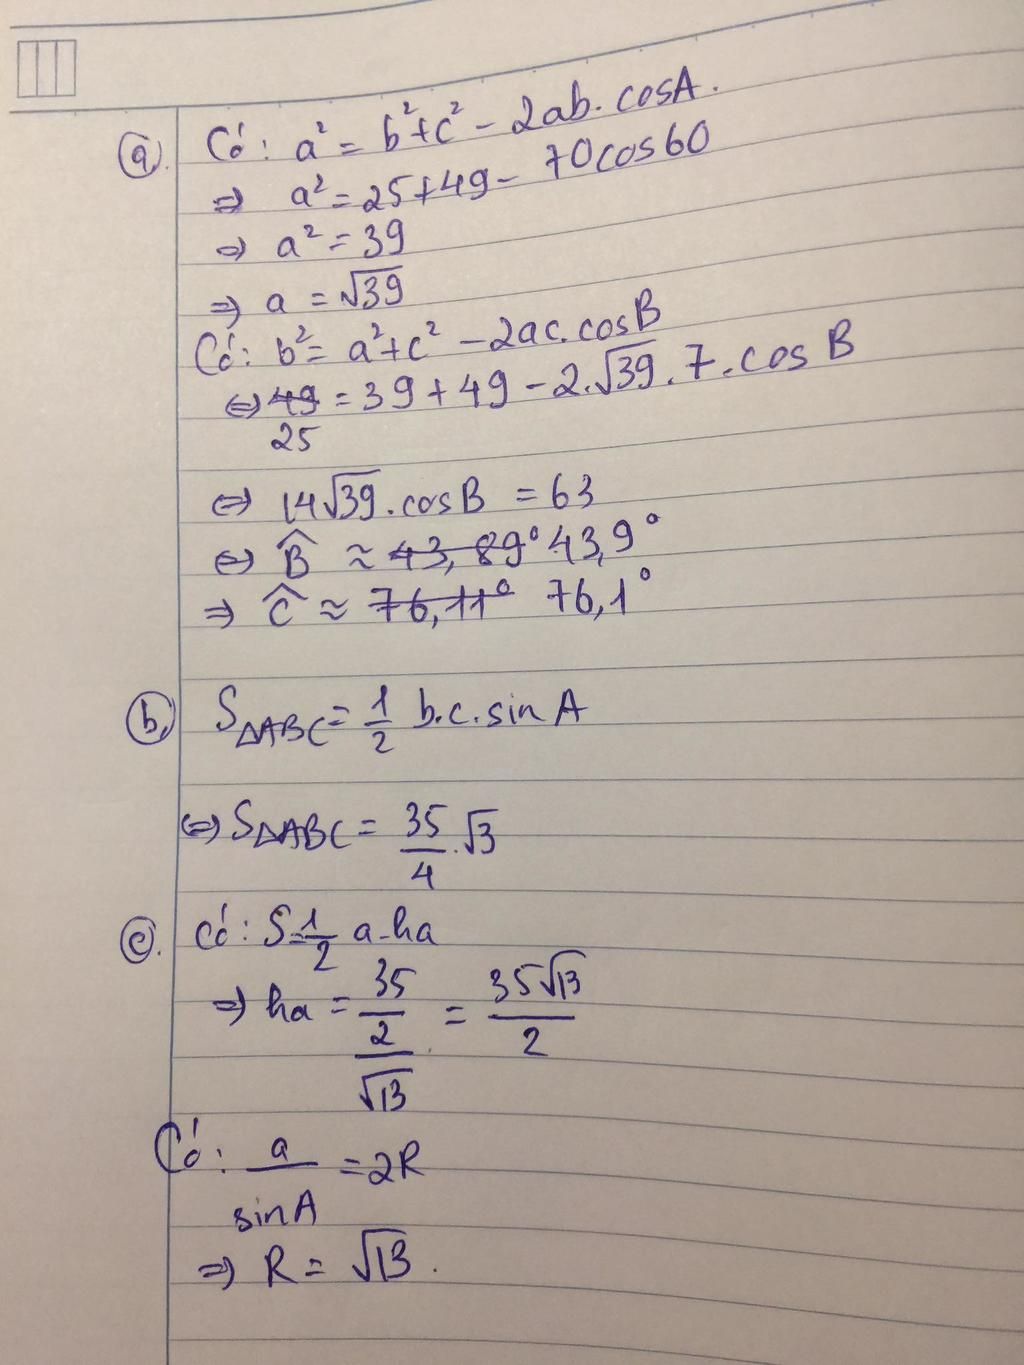 a. Có: a² = b² + c² - 2ab. cosA.
⇒ a² = 25 + 49 - 70cos60
⇒ a² = 39
⇒ a = √39
Có: b² = a² + c² - 2ac. cosB
⇔ 49 = 39 + 49 - 2.√39. 7. cos B
25
⇔ 14√39. cosB = 63
⇔ B̂ ≈ 43,89° 43,9°
⇒ Ĉ ≈ 76,11° 76,1°
b, S△ABC = 1/2 b.c. sin A
⇔ S△ABC = 35/4 . √3
c. Có: S = 1/2 a.ha
⇒ ha = 35/2/√13 = 35√13/2
Có: a/sinA = 2R
⇒ R = √13.